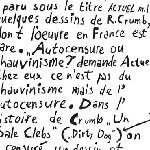 paru sous le titre ACTUEL
quelques dessins de R.Crumb,
dont l'oeuvre en France est
are. "Autocensure ou
hauvinisme? demande Actue
chez eux ce n'est pas du
hauvinisme mais de l'
autocensure. Dans l'
istoire de Crumb "Un
sale Clebs" (Dirty Dog) on
censuré un dessin et